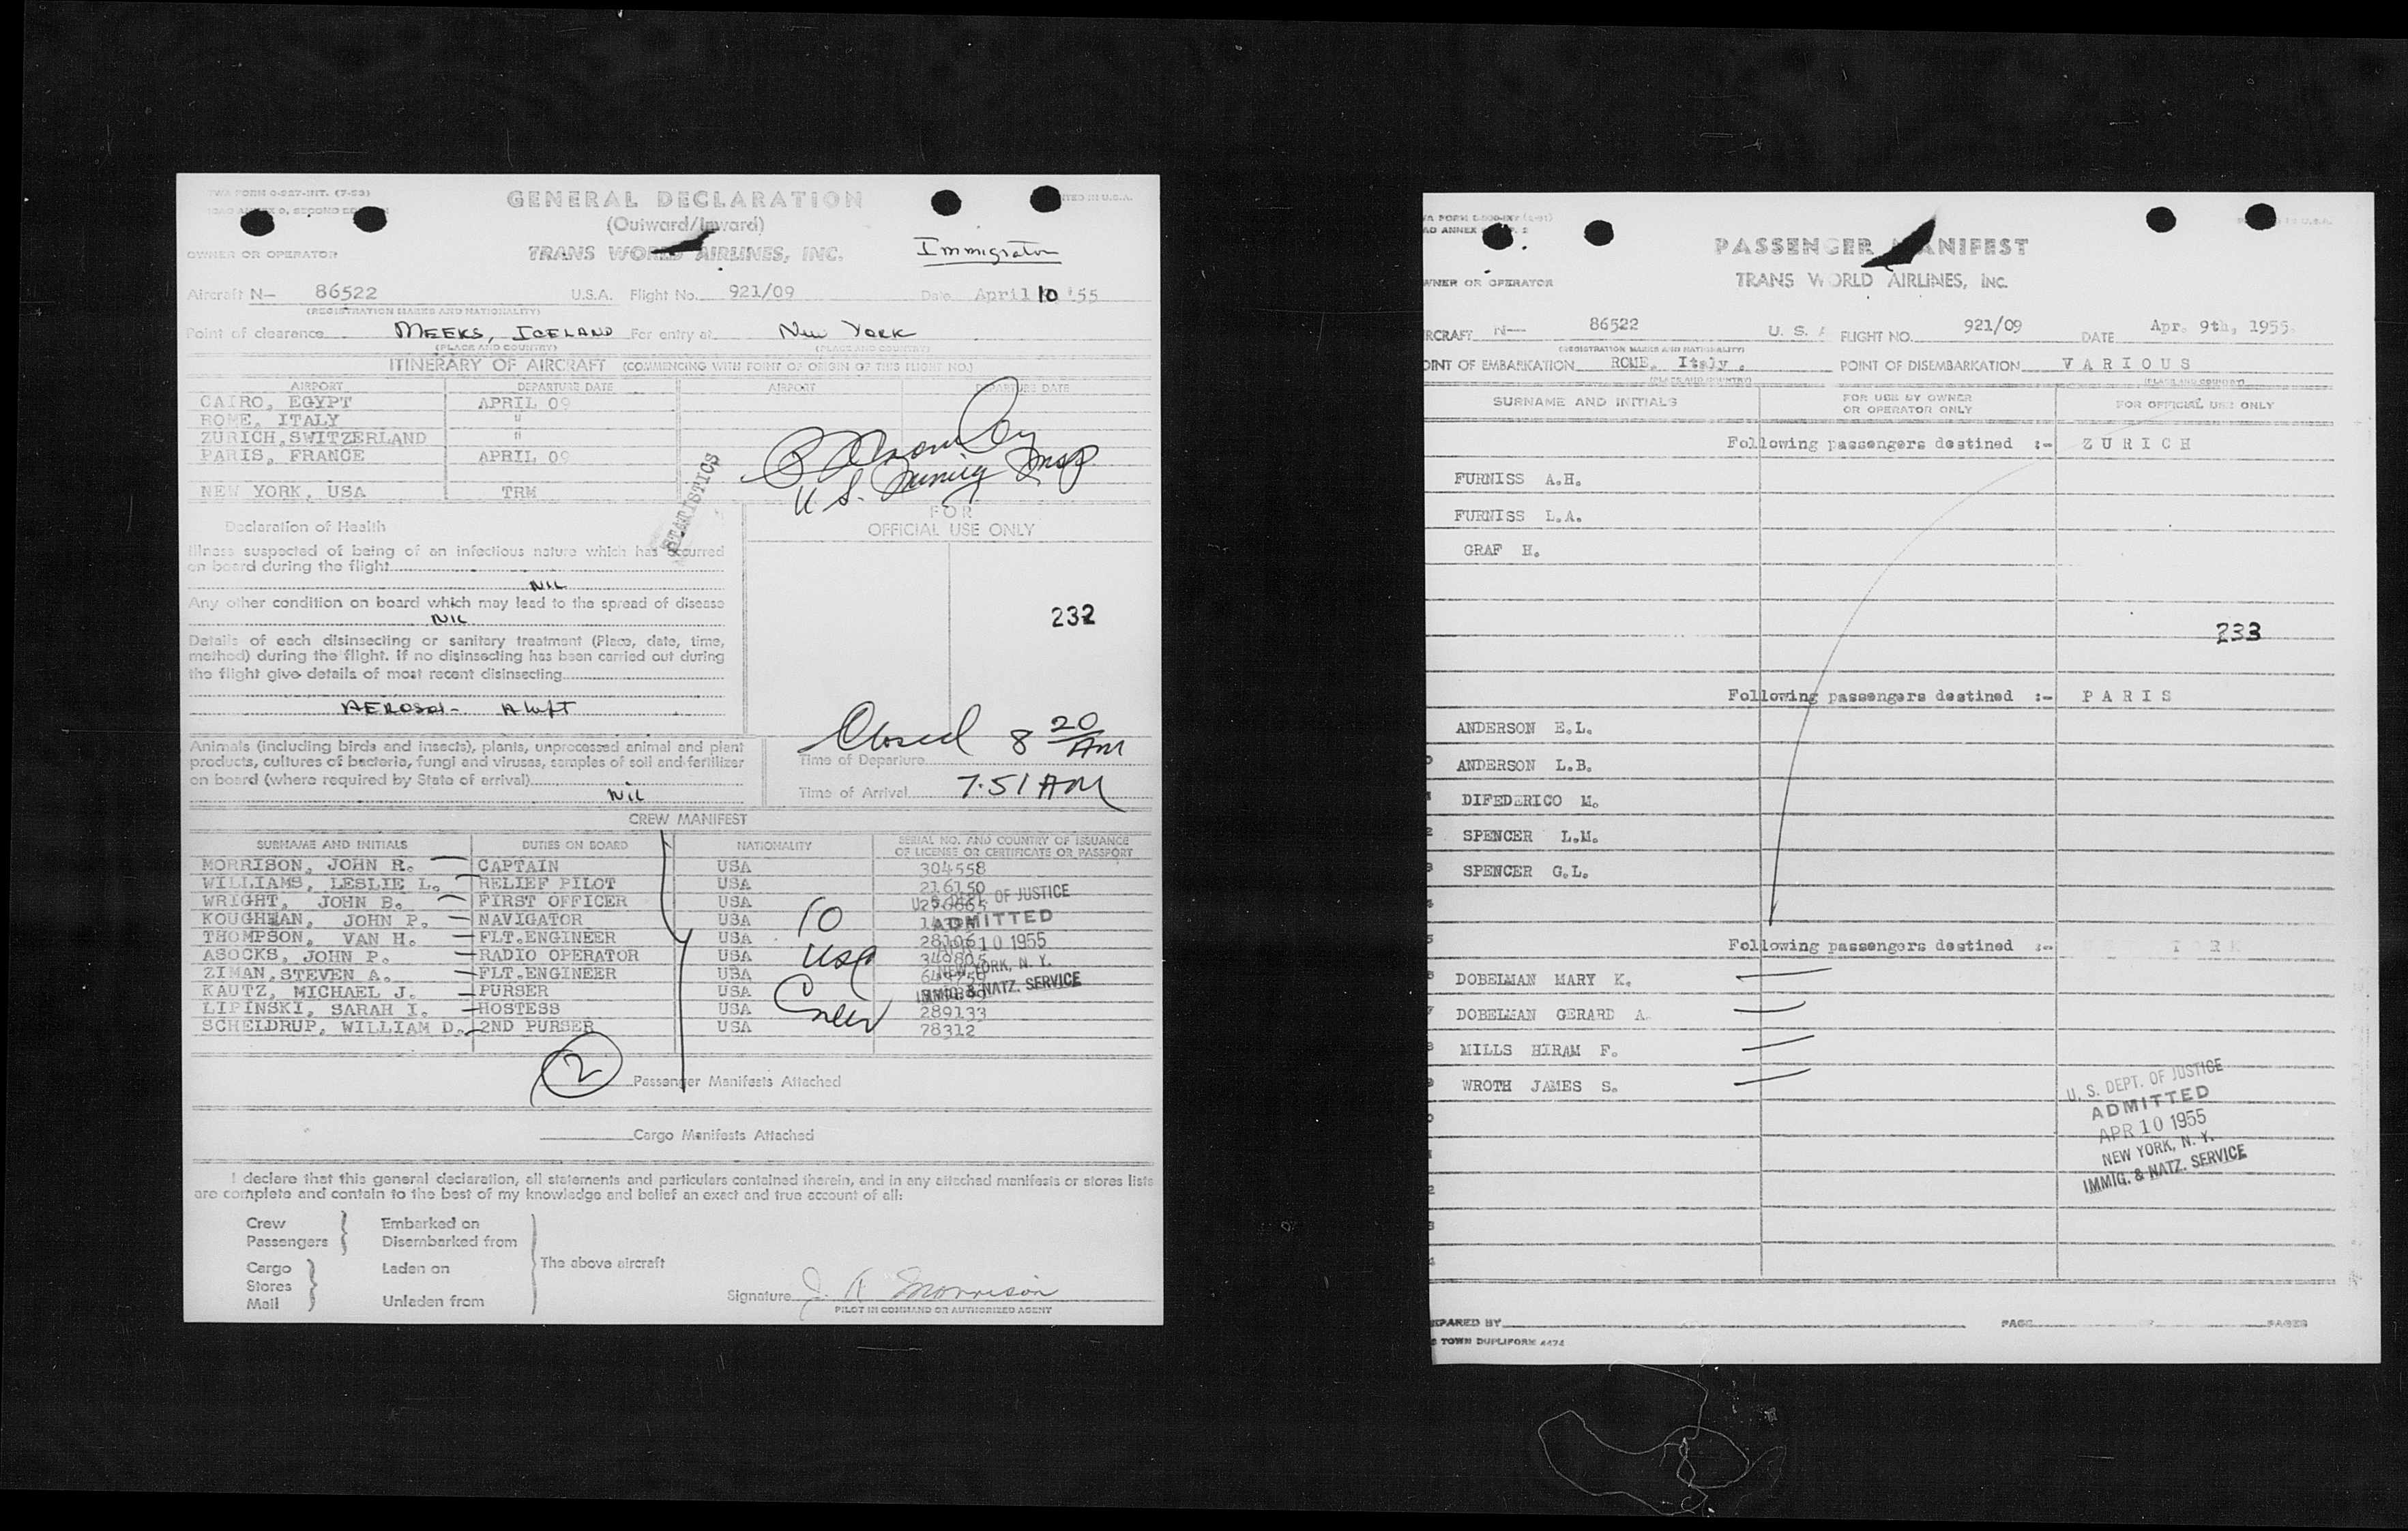 TWA FORM O-227-INT. (7-53)
GENERAL DECLARATION
(Outward/Inward)
OWNER OR OPERATOR
TRANS WORLD AIRLINES, INC.
Immigration
Aircraft N— 86522 U.S.A. Flight No. 921/09 Date April 10 '55
(REGISTRATION MARKS AND NATIONALITY)
Point of clearance MEEKS, ICELAND For entry at New York
(PLACE AND COUNTRY) (PLACE AND COUNTRY)
ITINERARY OF AIRCRAFT (COMMENCING WITH POINT OF ORIGIN OF THIS FLIGHT NO.)
AIRPORT DEPARTURE DATE AIRPORT DEPARTURE DATE
CAIRO, EGYPT APRIL 09
ROME, ITALY "
ZURICH, SWITZERLAND "
PARIS, FRANCE APRIL 09
NEW YORK, USA TRM
U.S. Immig Insp
STATISTICS
Declaration of Health
FOR
OFFICIAL USE ONLY
Illness suspected of being of an infectious nature which has occurred
on board during the flight
NIL
Any other condition on board which may lead to the spread of disease
NIL
232
Details of each disinsecting or sanitary treatment (Place, date, time,
method) during the flight. If no disinsecting has been carried out during
the flight give details of most recent disinsecting
AEROSOL - ALOFT
Closed 8 20 AM
Animals (including birds and insects), plants, unprocessed animal and plant
products, cultures of bacteria, fungi and viruses, samples of soil and fertilizer
on board (where required by State of arrival)
NIL
Time of Departure
Time of Arrival 7:51 AM
CREW MANIFEST
SURNAME AND INITIALS DUTIES ON BOARD NATIONALITY SERIAL NO. AND COUNTRY OF ISSUANCE
OF LICENSE OR CERTIFICATE OR PASSPORT
MORRISON, JOHN R. CAPTAIN USA 304558
WILLIAMS, LESLIE L. RELIEF PILOT USA 216150
WRIGHT, JOHN B. FIRST OFFICER USA
KOUGHNAN, JOHN P. NAVIGATOR USA
THOMPSON, VAN H. FLT.ENGINEER USA
ASOCKS, JOHN P. RADIO OPERATOR USA 349805
ZIMAN, STEVEN A. FLT.ENGINEER USA
KAUTZ, MICHAEL J. PURSER USA
LIPINSKI, SARAH I. HOSTESS USA 289133
SCHELDRUP, WILLIAM D. 2ND PURSER USA 78312
10
USC
Crew
U. S. DEPT. OF JUSTICE
ADMITTED
APR 10 1955
NEW YORK, N. Y.
IMMIG. & NATZ. SERVICE
2 Passenger Manifests Attached
Cargo Manifests Attached
I declare that this general declaration, all statements and particulars contained therein, and in any attached manifests or stores lists
are complete and contain to the best of my knowledge and belief an exact and true account of all:
Crew Embarked on
Passengers Disembarked from
The above aircraft
Cargo Laden on
Stores
Mail Unladen from
Signature J. R. Morrison
PILOT IN COMMAND OR AUTHORIZED AGENT
PASSENGER MANIFEST
TRANS WORLD AIRLINES, Inc.
WNER OR OPERATOR
RCRAFT N— 86522 U. S. A FLIGHT NO. 921/09 DATE Apr. 9th, 1955.
(REGISTRATION MARKS AND NATIONALITY)
OINT OF EMBARKATION ROME, Italy. POINT OF DISEMBARKATION VARIOUS
(PLACE AND COUNTRY) (PLACE AND COUNTRY)
SURNAME AND INITIALS FOR USE BY OWNER
OR OPERATOR ONLY FOR OFFICIAL USE ONLY
Following passengers destined :- ZURICH
FURNISS A.H.
FURNISS L.A.
GRAF H.
233
Following passengers destined :- PARIS
ANDERSON E.L.
ANDERSON L.B.
DIFEDERICO M.
SPENCER L.M.
SPENCER G.L.
Following passengers destined :-
DOBELMAN MARY K.
DOBELMAN GERARD A.
MILLS HIRAM F.
WROTH JAMES S.
U. S. DEPT. OF JUSTICE
ADMITTED
APR 10 1955
NEW YORK, N. Y.
IMMIG. & NATZ. SERVICE
EPARED BY PAGE OF PAGES
TOWN DUPLIFORM 4474